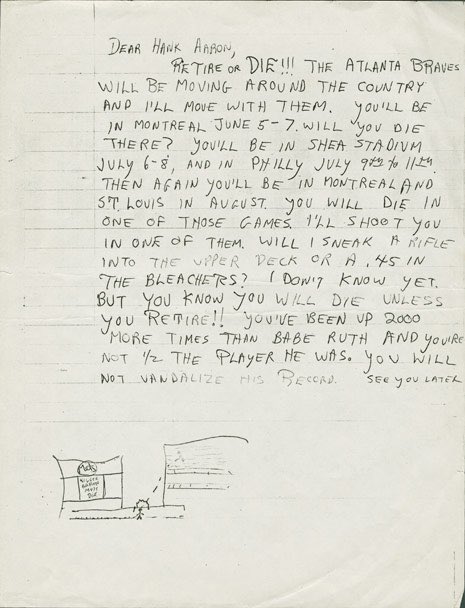 DEAR HANK AARON,
RETIRE OR DIE!!! THE ATLANTA BRAVES
WILL BE MOVING AROUND THE COUNTRY
AND I'LL MOVE WITH THEM. YOU'LL BE
IN MONTREAL JUNE 5-7. WILL YOU DIE
THERE? YOU'LL BE IN SHEA STADIUM
JULY 6-8, AND IN PHILLY JULY 9th to 11th.
THEN AGAIN YOU'LL BE IN MONTREAL AND
ST. LOUIS IN AUGUST. YOU WILL DIE IN
ONE OF THOSE GAMES. I'LL SHOOT YOU
IN ONE OF THEM. WILL I SNEAK A RIFLE
INTO THE UPPER DECK OR A .45 IN
THE BLEACHERS? I DON'T KNOW YET.
BUT YOU KNOW YOU WILL DIE UNLESS
YOU RETIRE!! YOU'VE BEEN UP 2000
MORE TIMES THAN BABE RUTH AND YOU'RE
NOT 1/2 THE PLAYER HE WAS. YOU WILL
NOT VANDALIZE HIS RECORD. SEE YOU LATER
Mets
MUST
DIE